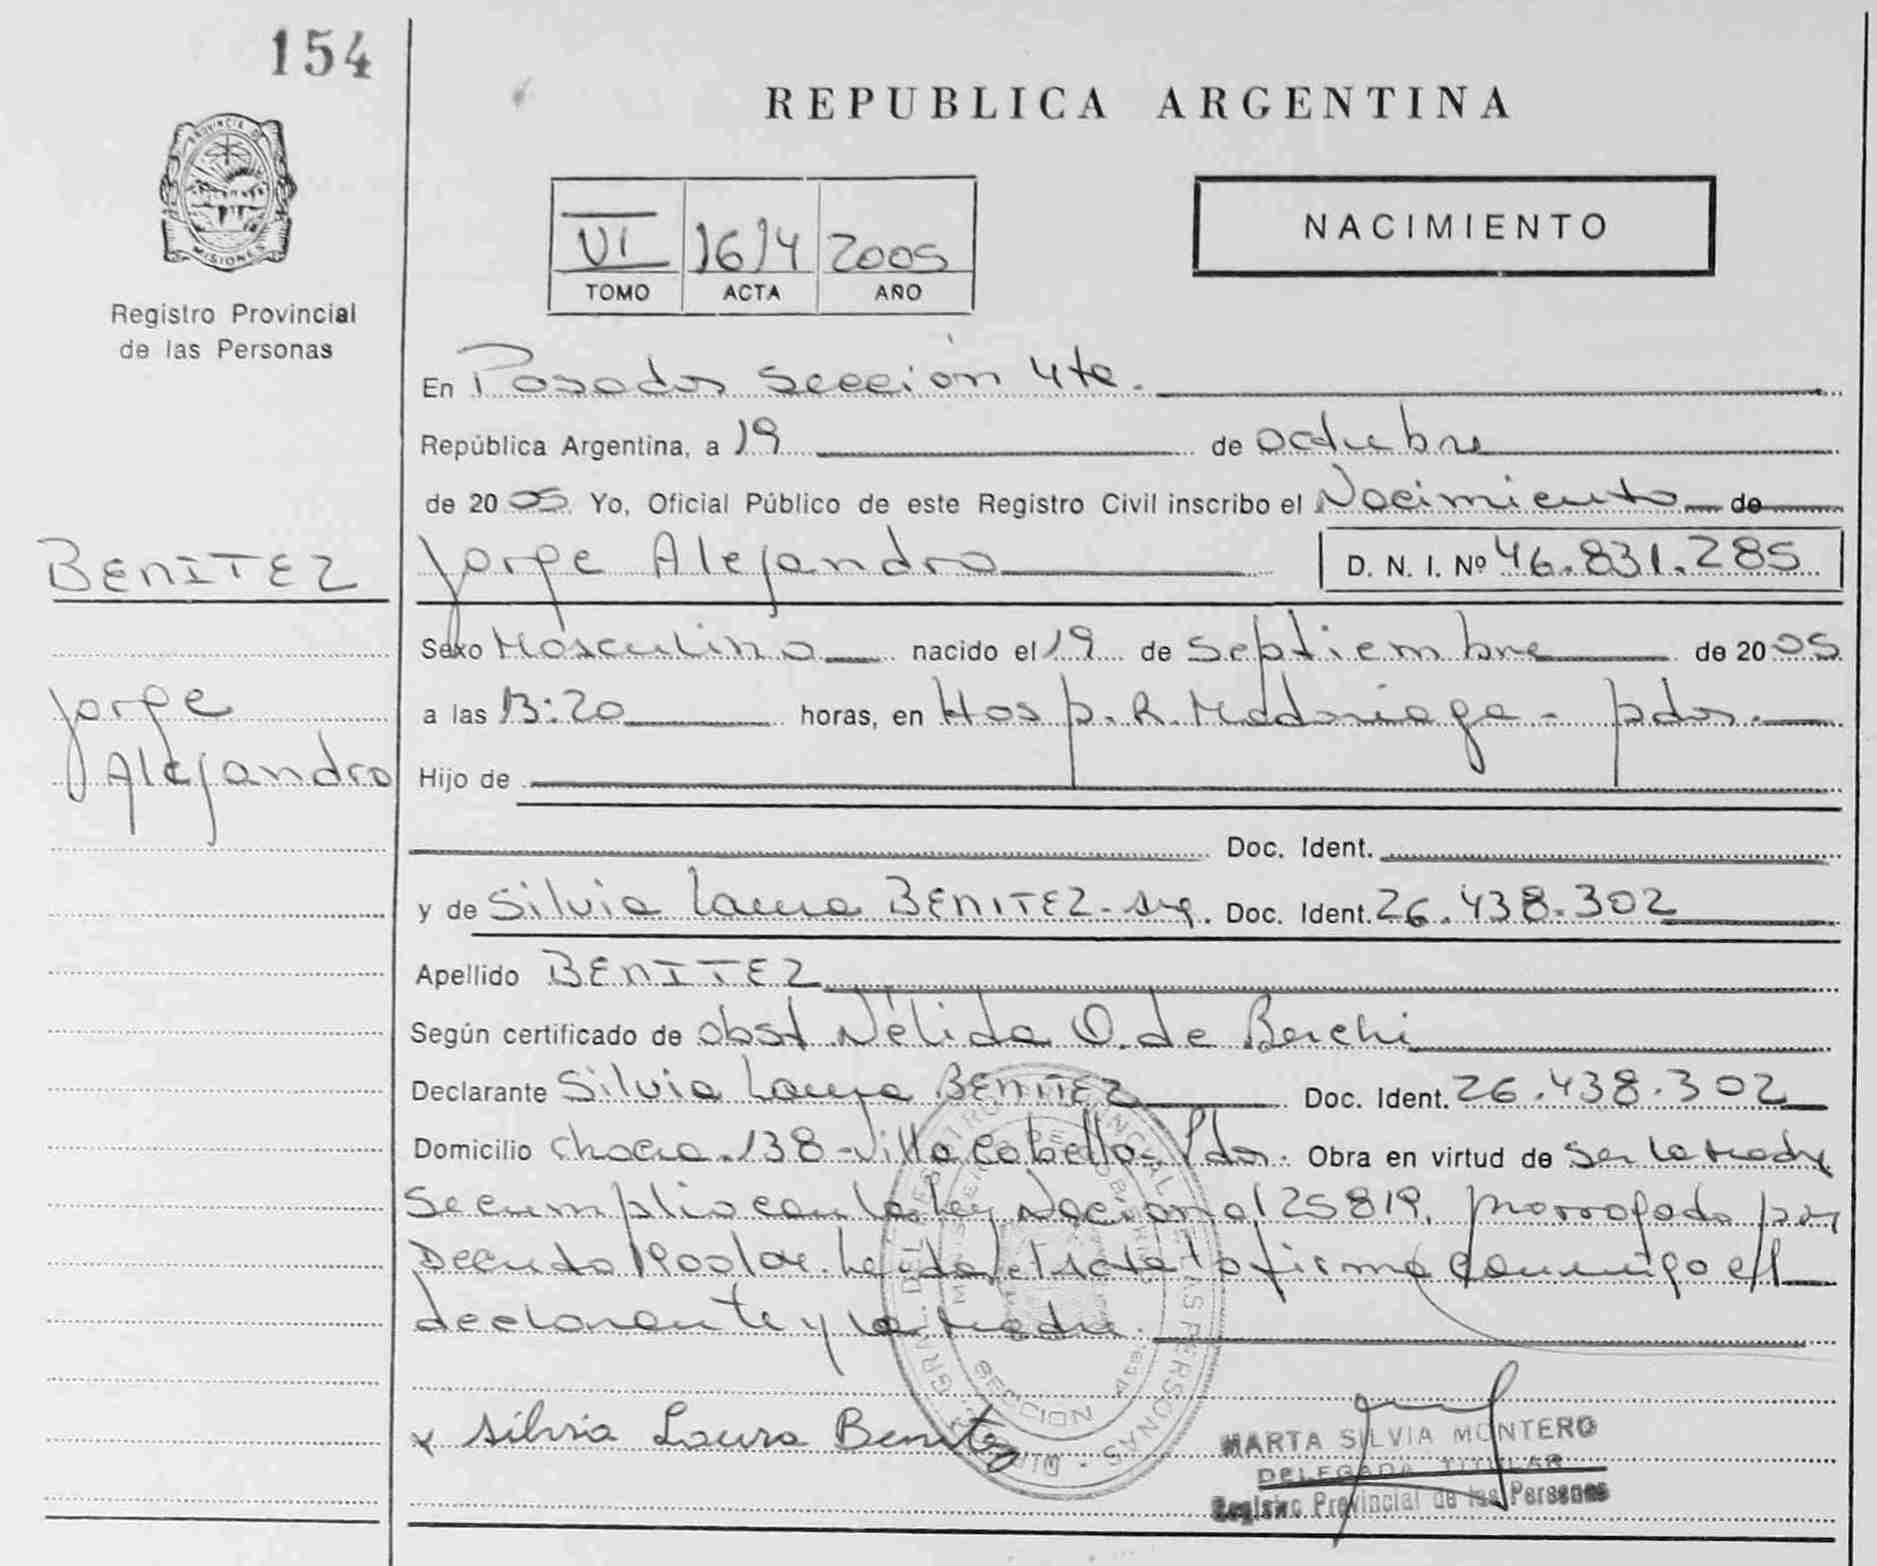 154
REPUBLICA ARGENTINA
PROVINCIA DE MISIONES
Registro Provincial
de las Personas
VI 1614 2005
TOMO ACTA AÑO
NACIMIENTO
En Posadas sección 4ta.
República Argentina, a 19 de octubre
de 2005 Yo, Oficial Público de este Registro Civil inscribo el Nacimiento de
BENITEZ
Jorge Alejandro D. N. I. Nº 46.831.285
Sexo Masculino nacido el 19 de septiembre de 2005
Jorge
Alejandro
a las 13:20 horas, en Hosp. R. Madariaga - pdas.
Hijo de
Doc. Ident.
y de Silvia Laura BENITEZ - arg. Doc. Ident. 26.438.302
Apellido BENITEZ
Según certificado de obst Nélida O. de Berchi
Declarante Silvia Laura BENITEZ Doc. Ident. 26.438.302
Domicilio chacra 138 - Villa Cabello - Pdas. Obra en virtud de ser la madre
Se cumplio con la ley Nacional 25819, prorrogada por
Decreto Leida el acta la firma conmigo el
declarante y la madre.
x Silvia Laura Benitez
MARTA SILVIA MONTERO
DELEGADA TITULAR
Registro Provincial de las Personas
SECCION 4ta.